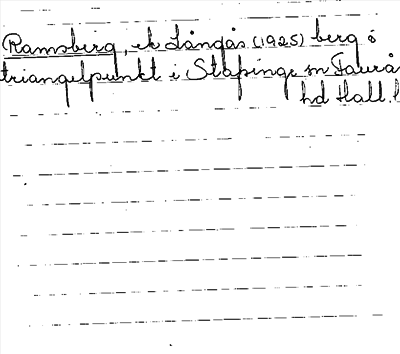 Ramsberg, ek Långås (1925) berg o
triangelpunkt i Stafsinge sn Faurå
hd Hall. l